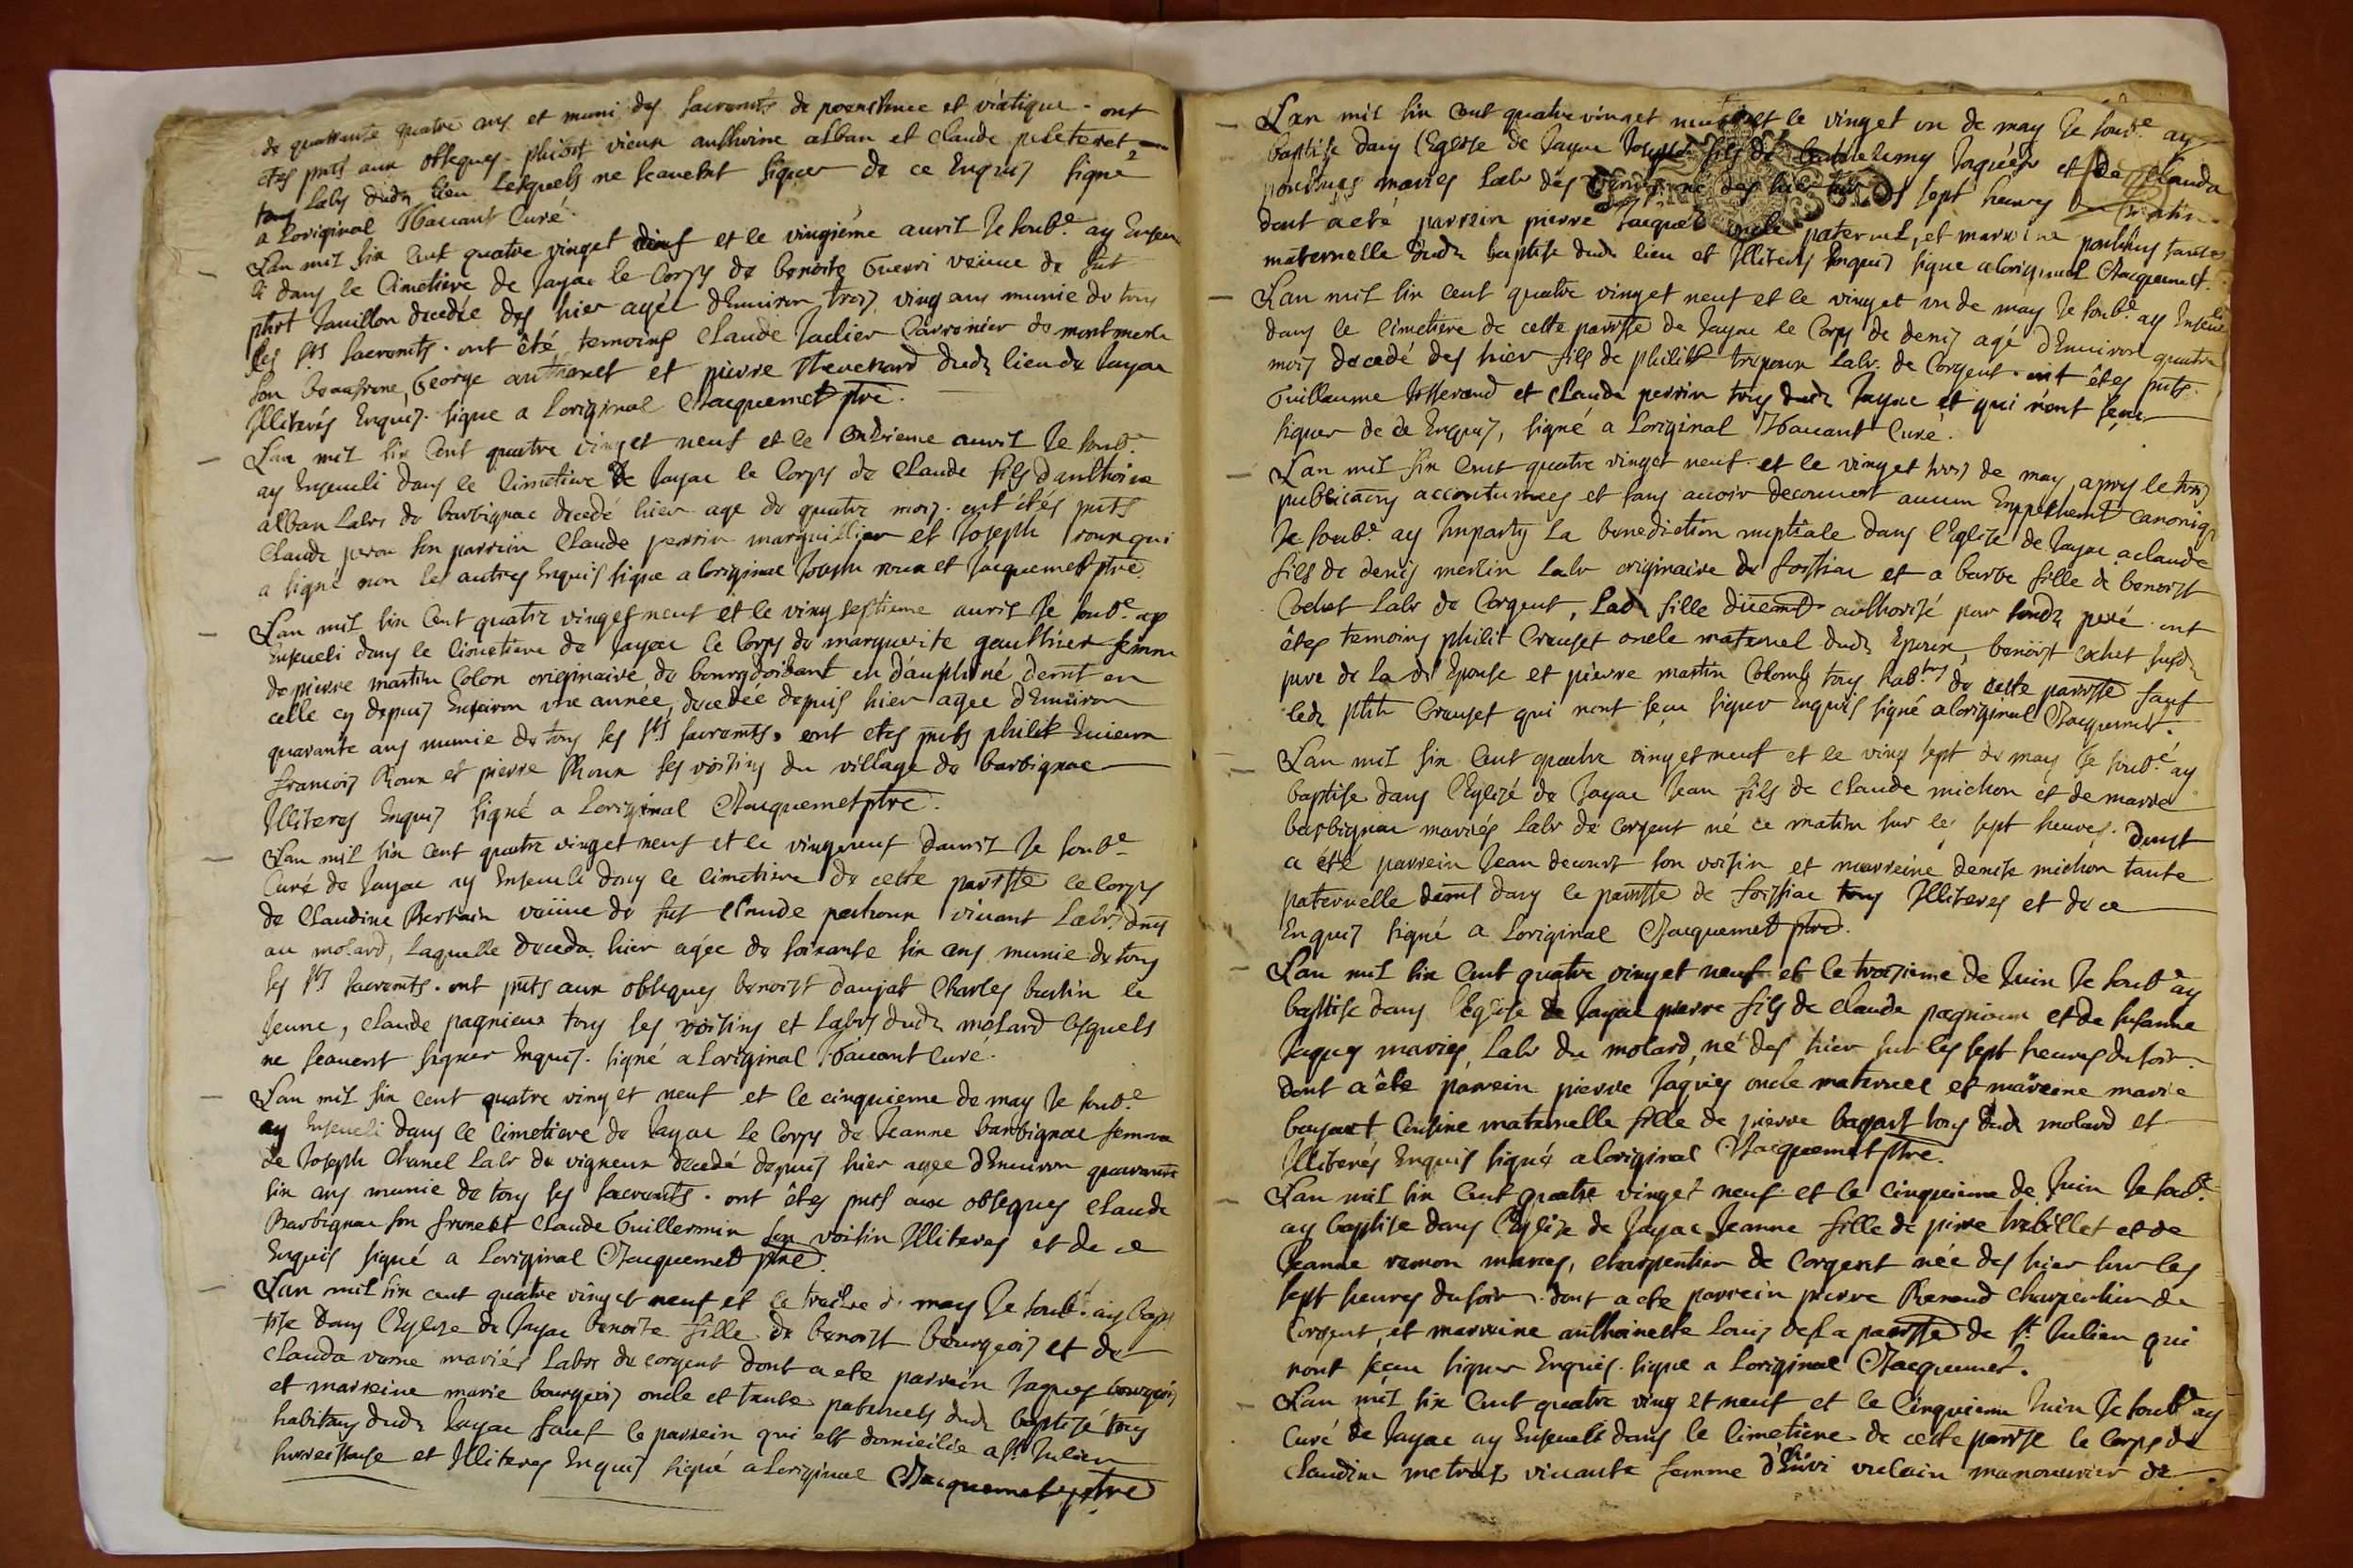 de quarrante quatre ans et muni des sacremts de poenitence et viatique. ont
etes pnts aux obseques philibt vieux anthoine alban et claude peleteret
tous labrs dudt lieu lesquels ne scauent signer de ce enquis signé
a Loriginal Hauant Curé.
Lan mil six cent quatre vinget neuf et le vingiéme auril Je soubé. ay Enseue
li dans le Cimetiere de Jayac le Corps de benoite Guerri veüue de fut
phbt Jauillon decedée des hier agée dEnuiron trois ving ans munie de tous
ses sts sacremts. ont été temoins Claude Jadier Carronier de montmerle
son beaufrere, George anthonet et pierre Theuenard dudt lieu de Jayac
Illiterés Enquis. signe a Loriginal Jacquemet ptre.
Lan mil six Cent quatre vinget neuf et le Onzieme auril Je soubé.
ay Enseueli dans le Cimetiere de Jayac le Corps de Claude fils danthoine
alban Labr de barbignac decedé hier age de quatre mois. ont étés pnts
Claude peron son parrein Claude perrin marguillier et Joseph roux qui
a signé non les autres Enquis signe a Loriginal Joseph roux et Jacquemet ptre.
Lan mil six Cent quatre vinget neuf et le ving septieme auril Je soubé. ay
Enseueli dans le Cimetiere de Jayac le Corps de marguerite gaulthier femme
de pierre martin Colon originaire de bourgdoisant en dauphiné demt en
celle cy depuis Enuiron vne année, decedée depuis hier agee dEnuiron
quarante ans munie de tous ses sts sacremts. ont etes pnts philibt
francois Roux et pierre Roux ses voisins du village de barbignac
Illiteres Enquis signé a Loriginal Jacquemet ptre.
Lan mil six cent quatre vinget neuf et le vingneuf dauril Je soubé.
Curé de Jayac ay Enseueli dans le Cimetiere de cette parroisse le Corps
de Claudine Bertrain veüue de fut Claude pechoux viuant Labr dudt
au molard, laquelle deceda hier agée de soixante six ans munie de tous
ses sts sacremts. ont pnts aux obseques benoist daujat Charles burtin le
Jeune, Claude pagnieux tous ses voisins et Labrs dudt molard lesquels
ne scauent signer Enquis. signé a Loriginal Hauant Curé.
Lan mil six cent quatre ving et neuf et le cinquieme de may Je soubé.
ay Enseueli dans le Cimetiere de Jayac le Corps de Jeanne barbignac femme
de Joseph Chanel Labr de vigneux decedé depuis hier agée dEnuiron quarante
six ans munie de tous ses sacremts. ont étes pnts aux obseques Claude
Barbignac son frere et Claude Guillermin son voisin Illiteres et de ce
Enquis signé a Loriginal Jacquemet ptre.
Lan mil six cent quatre vinget neuf et le treize de may Je soubé. ay bap
tise dans lEglise de Jayac benoite fille de benoist bourgeois et de
Clauda verne mariés Labrs de corgent dont a ete parrein Jaques bourgeois
et marreine marie bourgeois oncle et tante paternels dudt baptisé tous
habitans dudt Jayac sauf le parrein qui est domicilié a st Julien
et Illiteres Enquis signé a Loriginal Jacquemet ptre
Lan mil six Cent quatre vinget neuf et le vinget un de may Je soubé. ay
baptise dans lEglise de Jayac Joseph fils de barthelemy Jaquier et de Clauda
mariés Labr des hier sur les sept heures
dont a eté parrein pierre Jaquier oncle paternel, et marreine tante
maternelle dudt baptise dudt lieu et Illiteres Enquis signe a Loriginal Jacquemet.
Lan mil six cent quatre vinget neuf et le vinget vn de may Je soubé. ay Enseueli
dans le Cimetiere de cette parroisse de Jayac le Corps de denis agé dEnuiron quatre
mois decedé des hier fils de philibt trepoux Labr. de Corgent. ont étes pnts
Guillaume Josserand et Claude perrin tous dudt Jayac et qui n'ont sceu
signer de ce Enquis, signé a Loriginal Hauant Curé.
Lan mil six Cent quatre vinget neuf et le vinget trois de may apres le trois
publications accoutumees et sans auoir decouuert aucun Emppechemt canoniq
Je soubé. ay Imparty la benediction nuptiale dans lEglise de Jayac a claude
fils de denis merlin Labr originaire de foissiac et a barbe fille de benoist
Cochet Labr de Corgent, Ladt fille düemt authorisé par sondt peré. ont
étes temoins philibt Creuset oncle maternel dudt Epoux, benoist cochet susdt
pere de la dt Epouse et pierre martin Colomb tous habtns de cette parroisse sauf
ledt phbt Creuset qui nont sceu signer Enquis signé a Loriginal Jacquemet.
Lan mil six Cent quatre vinget neuf et le ving sept de may Je soubé. ay
baptise dans lEglise de Jayac Jean fils de Claude michon et de marie
barbignac mariés Labr de Corgent né ce matin sur les sept heures. dont
a été parrein Jean decourt son voisin et marreine denise michon tante
paternelle demt dans la parroisse de foissiac tous Illiteres et de ce
Enquis signé a Loriginal Jacquemet ptre.
Lan mil six Cent quatre vinget neuf et le troisieme de Juin Je soubé ay
baptise dans lEglise de Jayac pierre fils de Claude pagnioux et de susanne
Jaques mariés Labr du molard, né des hier sur les sept heures du soir.
dont a été parrein pierre Jaquies oncle maternel et marreine marie
bayart Cousine maternelle fille de pierre bayart tous dudt molard et
Illiterés Enquis signé a Loriginal Jacquemet ptre.
Lan mil six Cent quatre vinget neuf et le Cinquieme de Juin Je soubé.
ay baptise dans lEglise de Jayac Jeanne fille de pierre trebillet et de
Jeanne remon maries, charpentier de Corgent née des hier sur les
sept heures du soir. dont a ete parrein pierre Renaud Charpentier de
Corgent, et marreine anthoinette Louis de la parroisse de st. Julien qui
nont sceu signer Enquis. signe a Loriginal Jacquemet.
Lan mil six Cent quatre ving et neuf et le Cinquieme Juin Je soubé ay
Curé de Jayac ay Enseueli dans le Cimetiere de cette parroisse le Corps de
Claudine metras viuante femme d'henri vulcain manouurier de